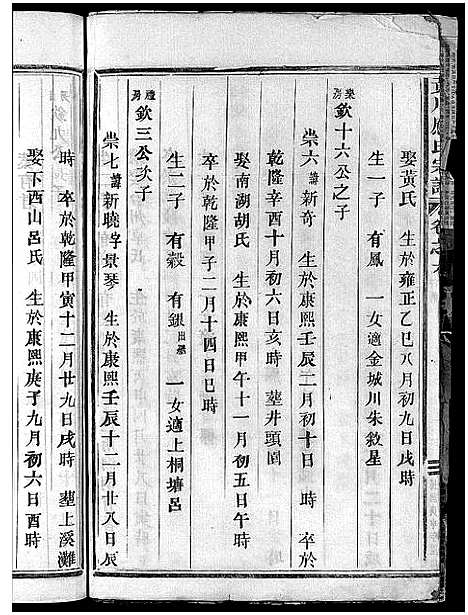 娶黃氏 生於雍正乙巳八月初九日戌時
生一子 有鳳 一女適金城川朱敘星
樂房 欽十六公之子
崇六 諱新奇 生於康熙壬辰二月初十日 時 卒於
乾隆辛酉十月初六日亥時 塟井頭園
娶南湖胡氏 生於康熙甲午十一月初五日午時
卒於乾隆甲子二月十四日巳時
生二子 有穀 有銀出繼 一女適上桐塘呂
禮房 欽三公次子
崇七 諱新曉字景琴 生於康熙壬辰十二月廿八日辰
時 卒於乾隆甲寅十二月廿九日戌時 塟上溪灘
娶下西山呂氏 生於康熙庚子九月初六日酉時